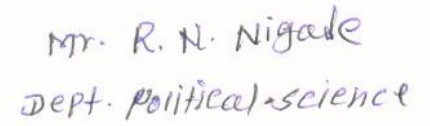 Mr. R. N. Nigade
Dept. political-science